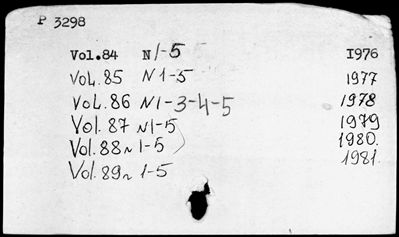 P 3298
Vol.84 N1-5 I976
Vol.85 N1-5 1977
Vol.86 N1-3-4-5 1978
Vol.87 N1-5 1979
Vol.88 N 1-5 1980.
Vol.89 N 1-5 1981.